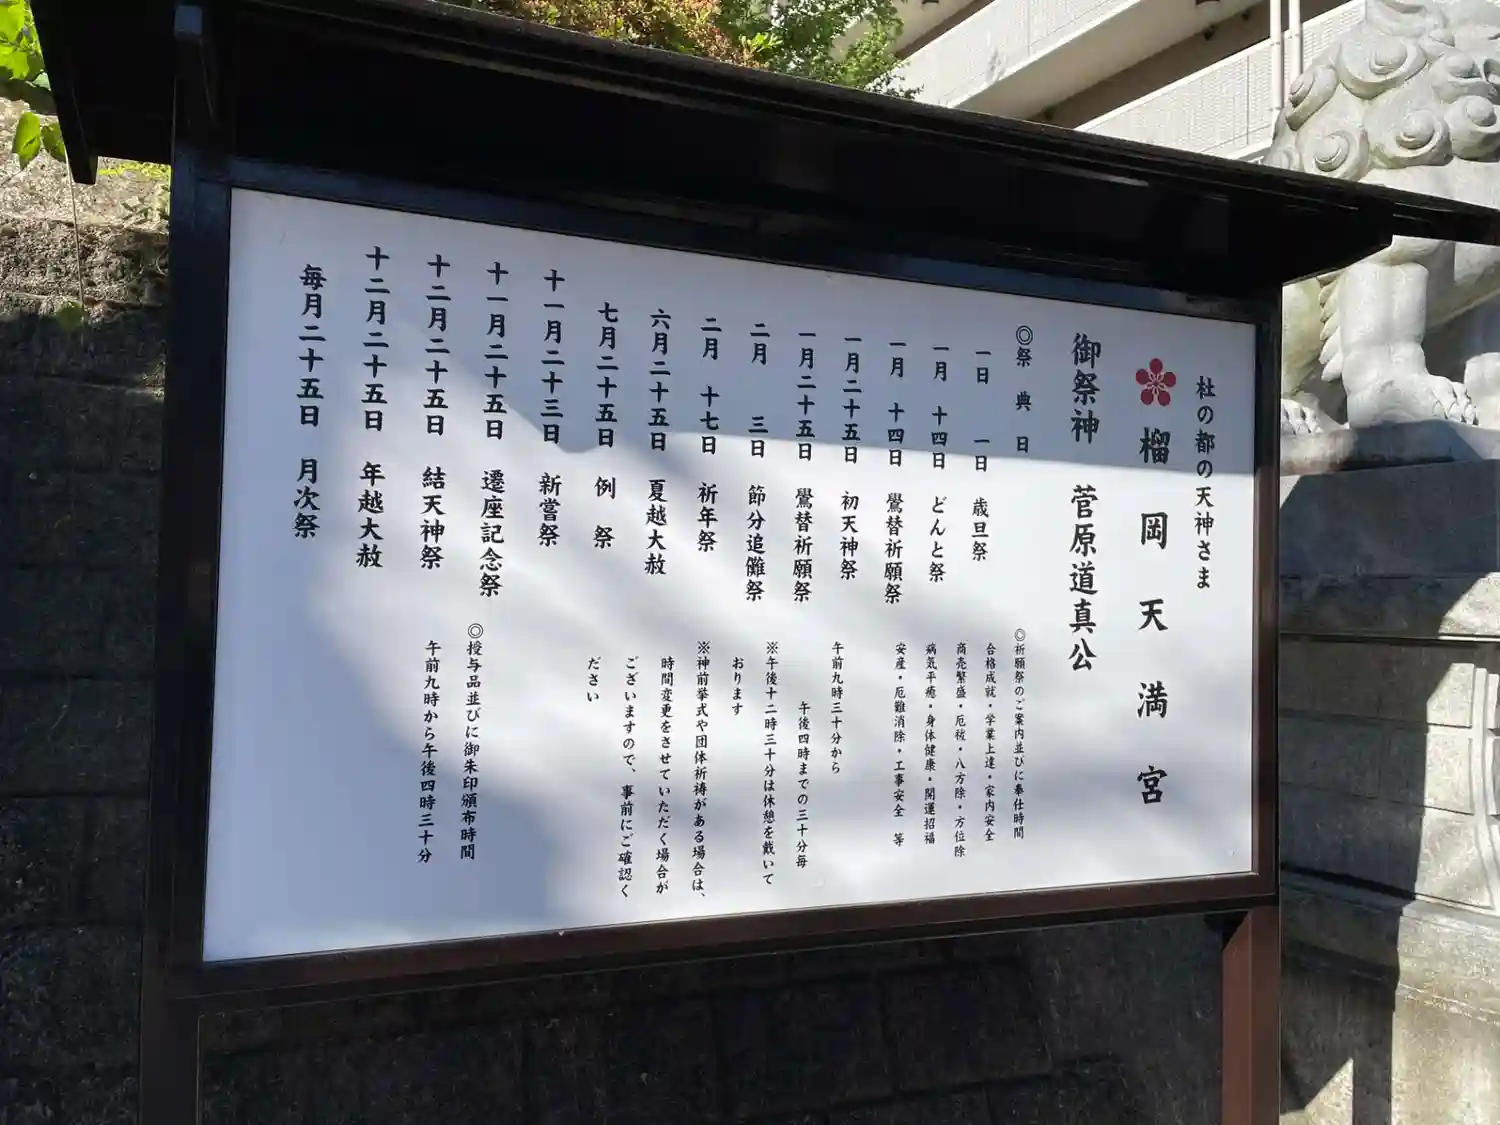 杜の都の天神さま
榴岡天満宮
御祭神 菅原道真公
◎祭典日
一日 一日 歳旦祭
一月 十四日 どんと祭
一月 十四日 鷽替祈願祭
一月二十五日 初天神祭
一月二十五日 鷽替祈願祭
二月 三日 節分追儺祭
二月 十七日 祈年祭
六月二十五日 夏越大祓
七月二十五日 例祭
十一月二十三日 新嘗祭
十一月二十五日 遷座記念祭
十二月二十五日 結天神祭
十二月二十五日 年越大祓
毎月二十五日 月次祭
◎祈願祭のご案内並びに奉仕時間
合格成就・学業上達・家内安全
商売繁盛・厄祓・八方除・方位除
病気平癒・身体健康・開運招福
安産・厄難消除・工事安全 等
午前九時三十分から
午後四時までの三十分毎
※午後十二時三十分は休憩を戴いて
おります
※神前挙式や団体祈祷がある場合は、
時間変更をさせていただく場合が
ございますので、事前にご確認く
ださい
◎授与品並びに御朱印頒布時間
午前九時から午後四時三十分